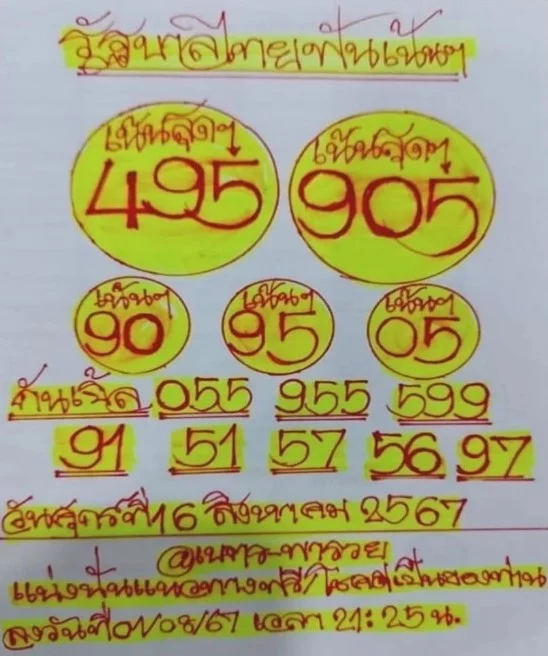 รัฐบาลไทยฟันเน้นๆ
เน้นสุดๆ เน้นสุดๆ
495 905
เน้นๆ เน้นๆ เน้นๆ
90 95 05
กันเบิ้ล 055 955 599
91 51 57 56 97
วันศุกร์ที่16 สิงหาคม 2567
@เนทระพารวย
แบ่งปันแนวทางฟรี/โชคดีเป็นของท่าน
ลงวันที่01/08/67 เวลา 21:25 น.